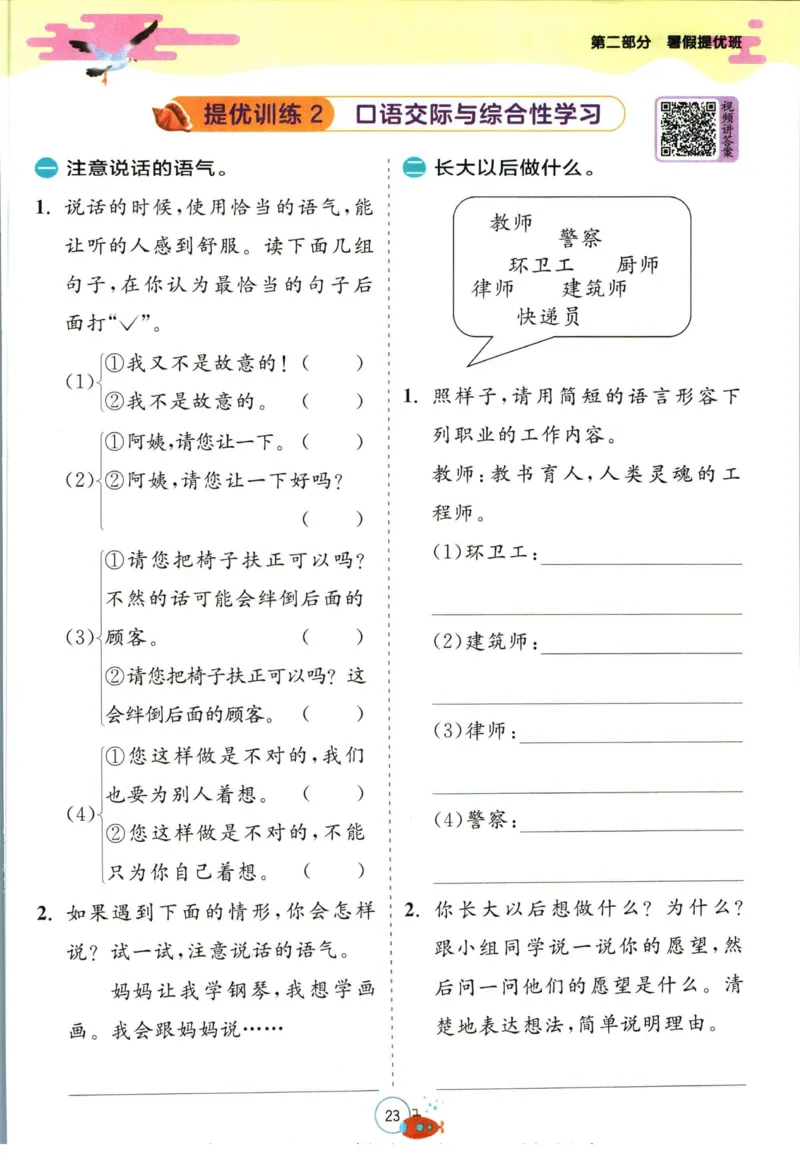 第二部分 暑假提优班
提优训练 2 口语交际与综合性学习
视频讲答案
一 注意说话的语气。
1. 说话的时候,使用恰当的语气,能
让听的人感到舒服。读下面几组
句子,在你认为最恰当的句子后
面打“✓”。
(1) ①我又不是故意的!( )
②我不是故意的。 ( )
(2) ①阿姨,请您让一下。( )
②阿姨,请您让一下好吗?
( )
(3) ①请您把椅子扶正可以吗?
不然的话可能会绊倒后面的
顾客。 ( )
②请您把椅子扶正可以吗? 这
会绊倒后面的顾客。 ( )
(4) ①您这样做是不对的,我们
也要为别人着想。 ( )
②您这样做是不对的,不能
只为你自己着想。 ( )
2. 如果遇到下面的情形,你会怎样
说? 试一试,注意说话的语气。
妈妈让我学钢琴,我想学画
画。我会跟妈妈说……
二 长大以后做什么。
教师
警察
环卫工 厨师
律师 建筑师
快递员
1. 照样子,请用简短的语言形容下
列职业的工作内容。
教师:教书育人,人类灵魂的工
程师。
(1)环卫工:
(2)建筑师:
(3)律师:
(4)警察:
2. 你长大以后想做什么? 为什么?
跟小组同学说一说你的愿望,然
后问一问他们的愿望是什么。清
楚地表达想法,简单说明理由。
23